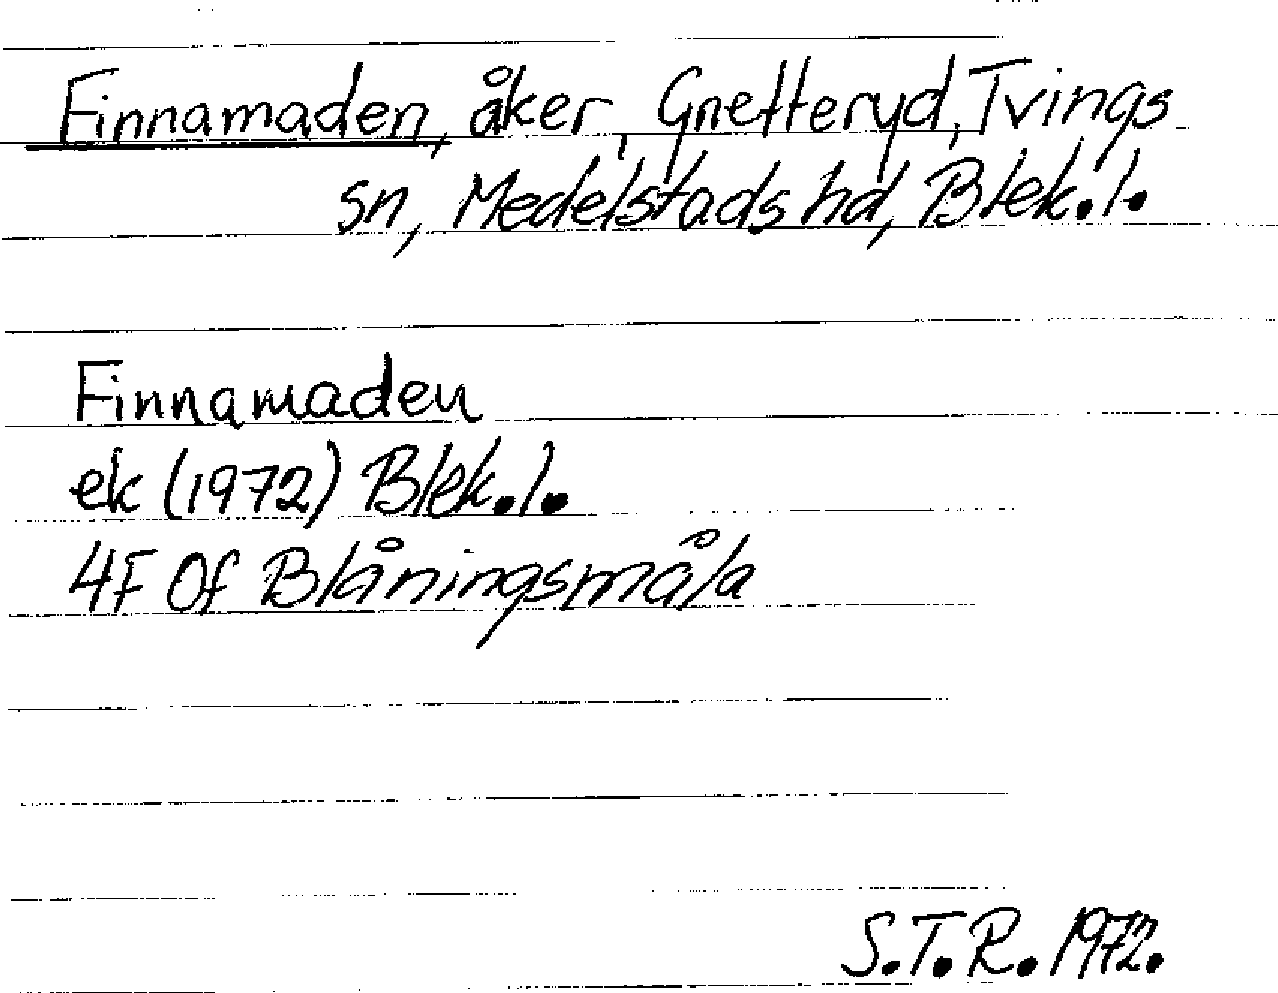 Finnamaden, åker, Gnetteryd, Tvings
sn, Medelstads hd, Blek.l.
Finnamaden
ek (1972) Blek.l.
4F 0f Blåningsmåla
S.T.R. 1972.